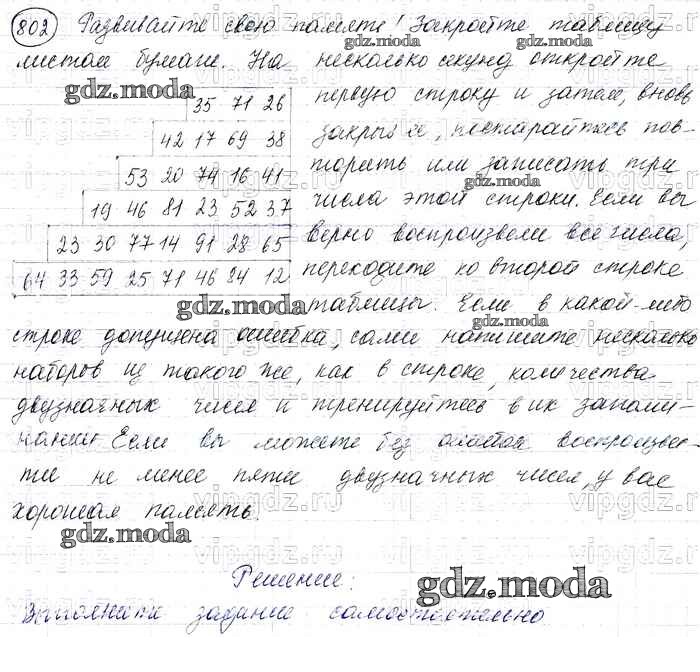 802 Развивайте свою память! Закройте таблицу
листом бумаги. На несколько секунд откройте
35 71 26 первую строку и затем, вновь
42 17 69 38 закрыв ее, постарайтесь пов-
53 20 74 16 41 торить или записать три
19 46 81 23 52 37 числа этой строки. Если вы
23 30 77 14 91 28 65 верно воспроизвели все числа,
64 33 59 25 71 46 84 12 переходите ко второй строке
таблицы. Если в какой-либо
строке допущена ошибка, сами напишите несколько
наборов из такого же, как в строке, количества
двузначных чисел и тренируйтесь в их запоми-
нании. Если вы можете без ошибок воспроизвес-
ти не менее пяти двузначных чисел, у вас
хорошая память.
Решение:
Выполните задание самостоятельно
gdz.moda
gdz.moda
gdz.moda
gdz.moda
gdz.moda
gdz.moda
gdz.moda
gdz.moda
vipgdz.ru